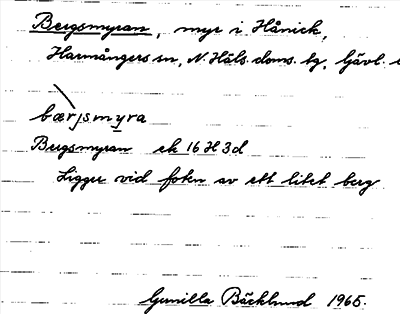 Bergsmyran, myr i Hånick,
Harmångers sn, N. Häls. doms. tg, Gävl.
bærjsmyra
Bergsmyran ek 16 H 3d
Ligger vid foten av ett litet berg
Gunilla Bäcklund 1965.